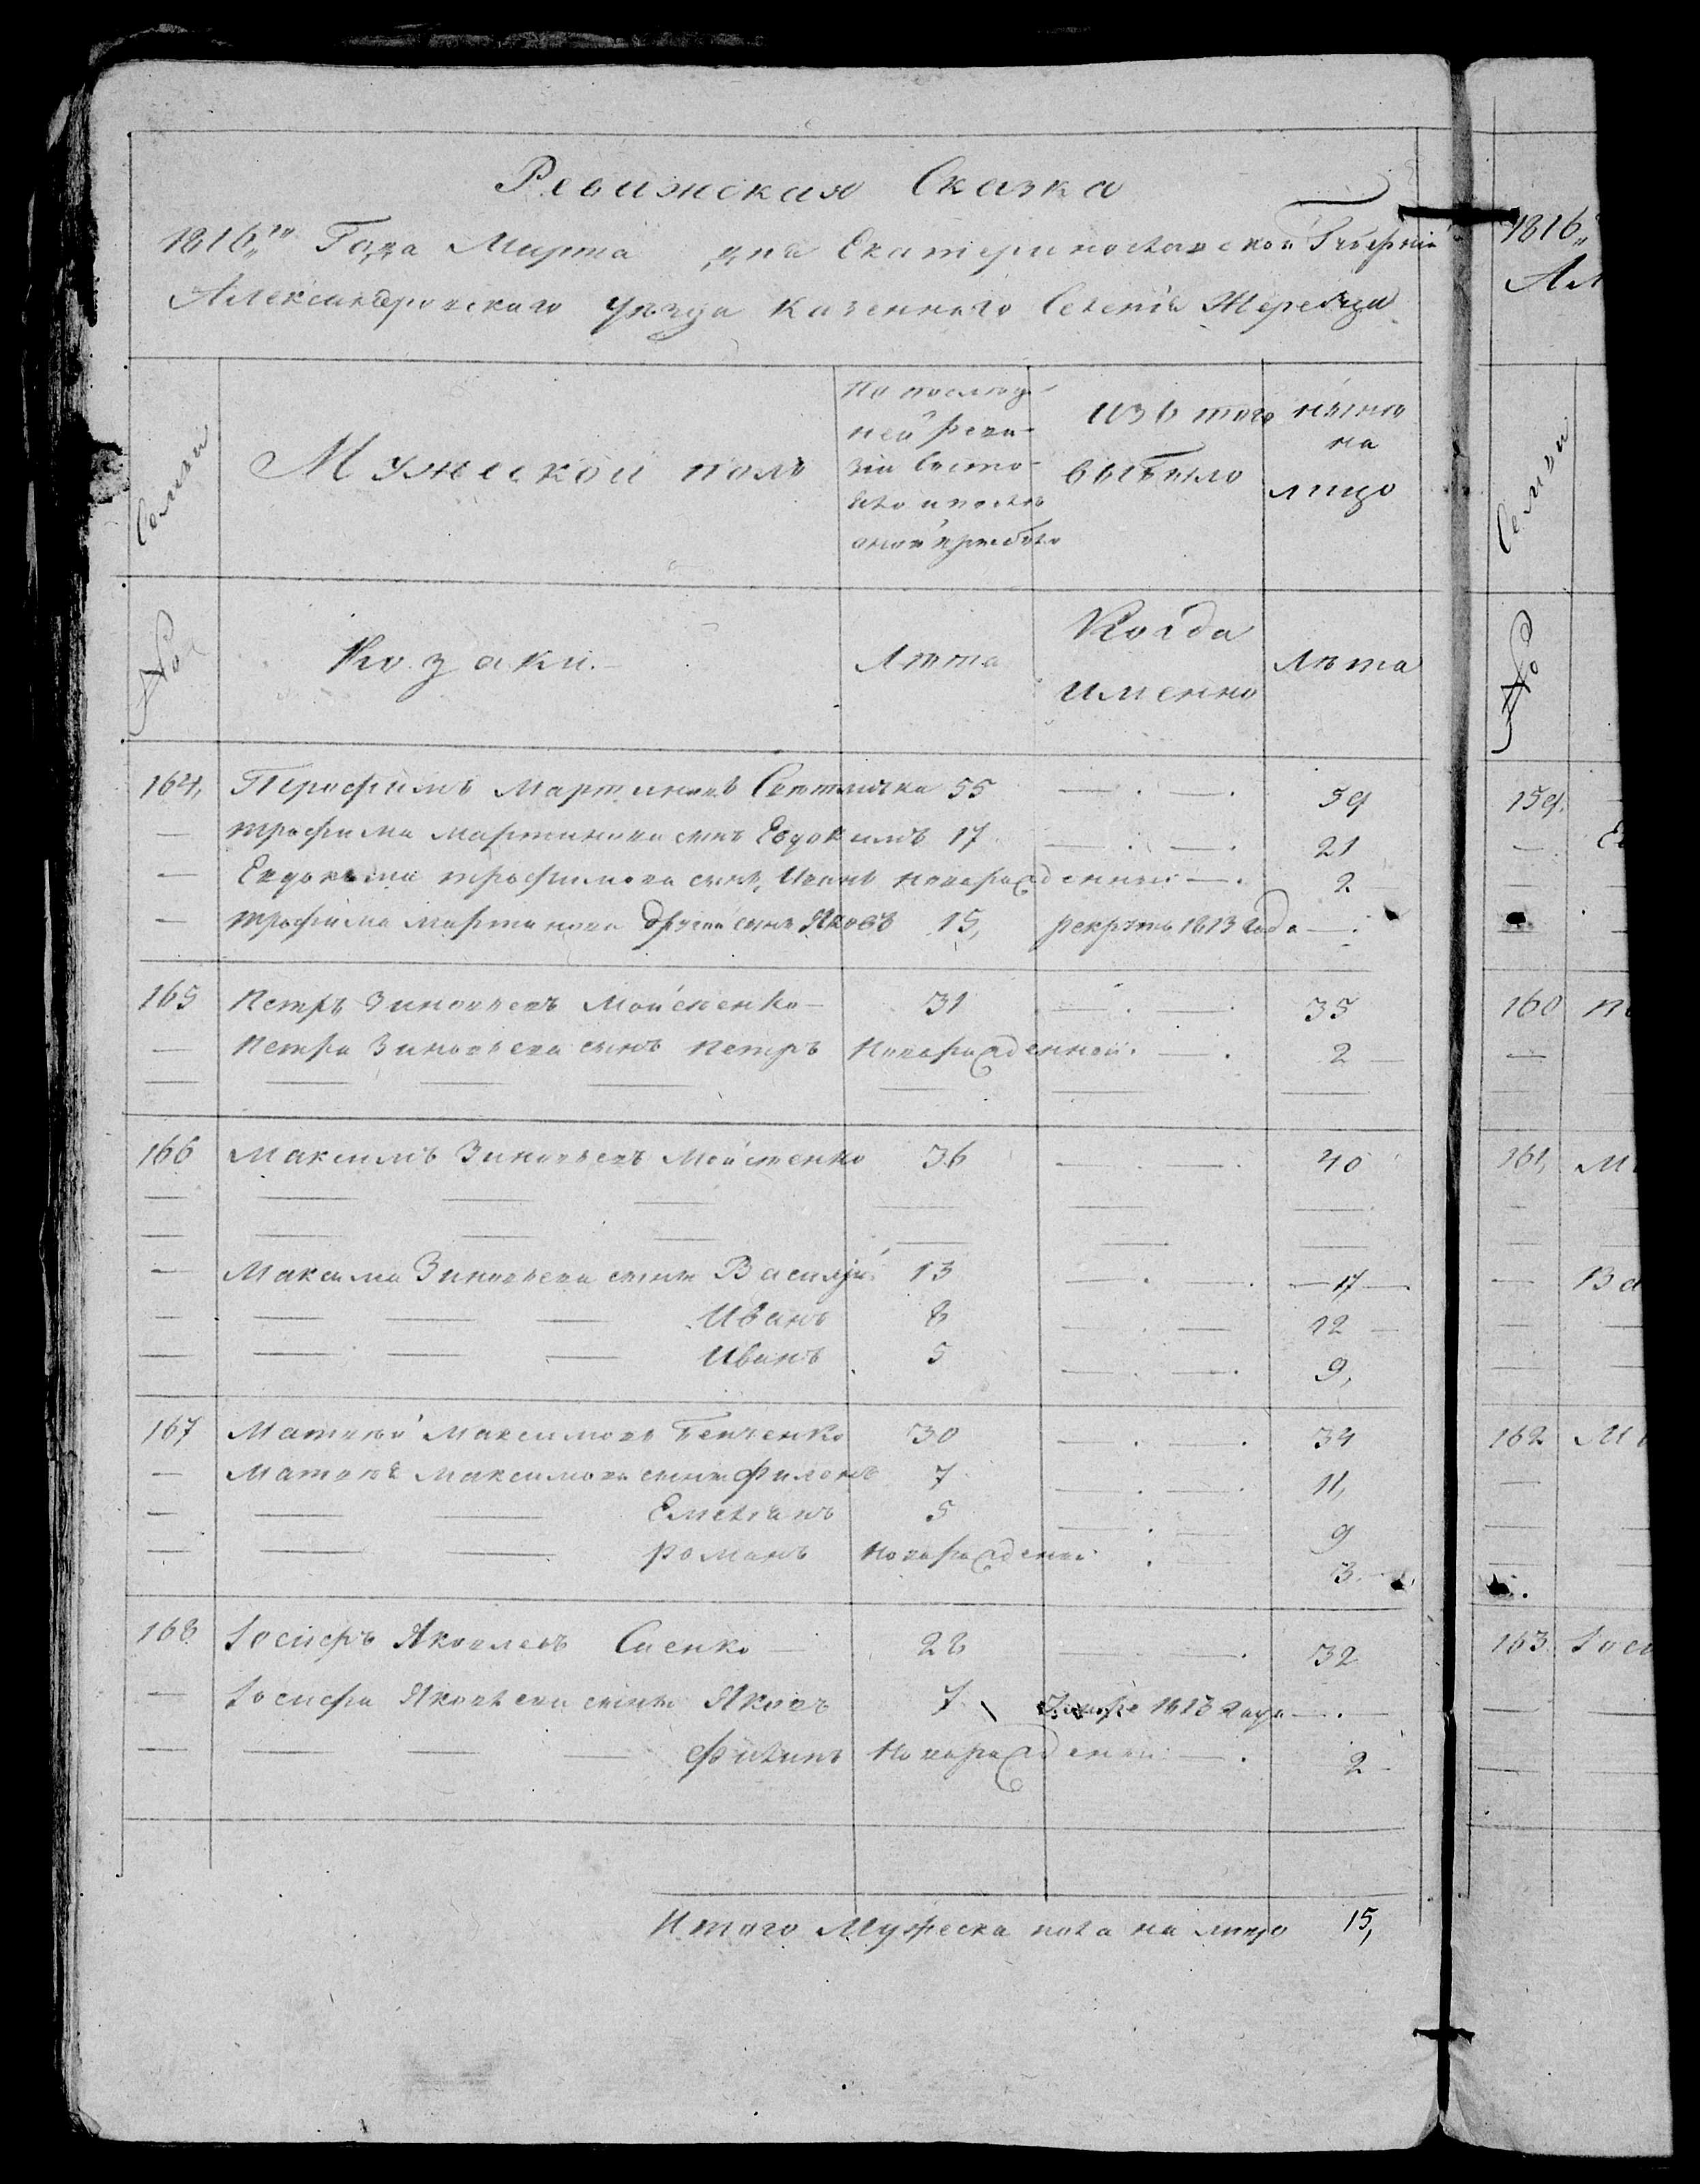 Ревижская Сказка
1816„го Года Марта дня Екатеринославской Губернiи
Александровскаго уезда Казеннаго Селенiя Жеребца
Семьи
Мужеской полъ
По послед-
ней реви-
зiи состо-
яло и после
оной прибыло
Изъ того
выбыло
ныне
на
лицо
№
Козаки.
Лета
Когда
именно
Лета
164, Трофимъ Мартиновъ 55 — . — . 59
— Трофима Мартинова сынъ Евдокимъ 17 — . — . 21
— Евдокима Трофимова сынъ Иванъ новорожденный — . 2
— Трофима Мартинова другой сынъ Яковъ 15, рекрутъ 1813 года — .
165 Петръ Зиновьевъ Мойсеенко — 31 — . — . 35
— Петра Зиновьева сынъ Петръ Новорожденной . — . 2 —
— — — — — — —
166 Максимъ Зиновьевъ Мойсеенко 36 — . — . 40
— — — — — — —
— — — — — — —
— Максима Зиновьева сынъ Василiй 13 — . — . — 17 —
— — — — Иванъ 8 — . — 12 —
— — — — Иванъ 5 — . — . 9,
167 Матвей Максимовъ 30 — . — . 34
— Матвея Максимова сынъ Филонъ 7 — . — . 11,
— — — Емельянъ 5 — . — 9
— — — Романъ Новорожденой . — 3. —
168 Iосифъ Яковлевъ Саенко — 28 — . — . 32
— Iосифа Яковлева сынъ Яковъ 7 1813 года — . —
— — — — Филипъ Новорожденой — . 2 —
Итого Мужеска пола на лицо 15,
1816„
Ал
Семьи
№
159.
160
161,
162
163